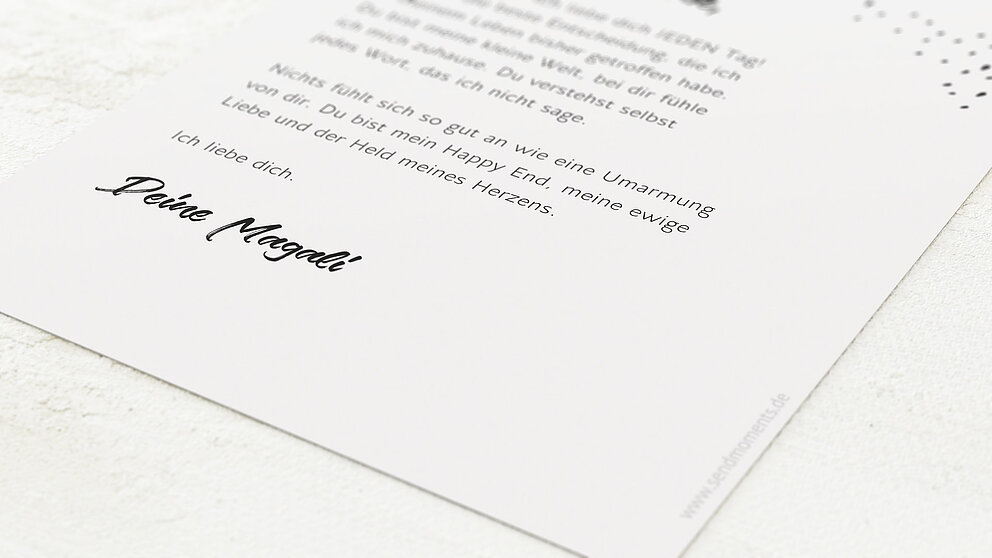 ich liebe dich JEDEN Tag!
beste Entscheidung, die ich
Leben bisher getroffen habe.
Du bist meine kleine Welt, bei dir fühle
ich mich zuhause. Du verstehst selbst
jedes Wort, das ich nicht sage.
Nichts fühlt sich so gut an wie eine Umarmung
von dir. Du bist mein Happy End, meine ewige
Liebe und der Held meines Herzens.
Ich liebe dich.
Deine Magali
www.sendmoments.de